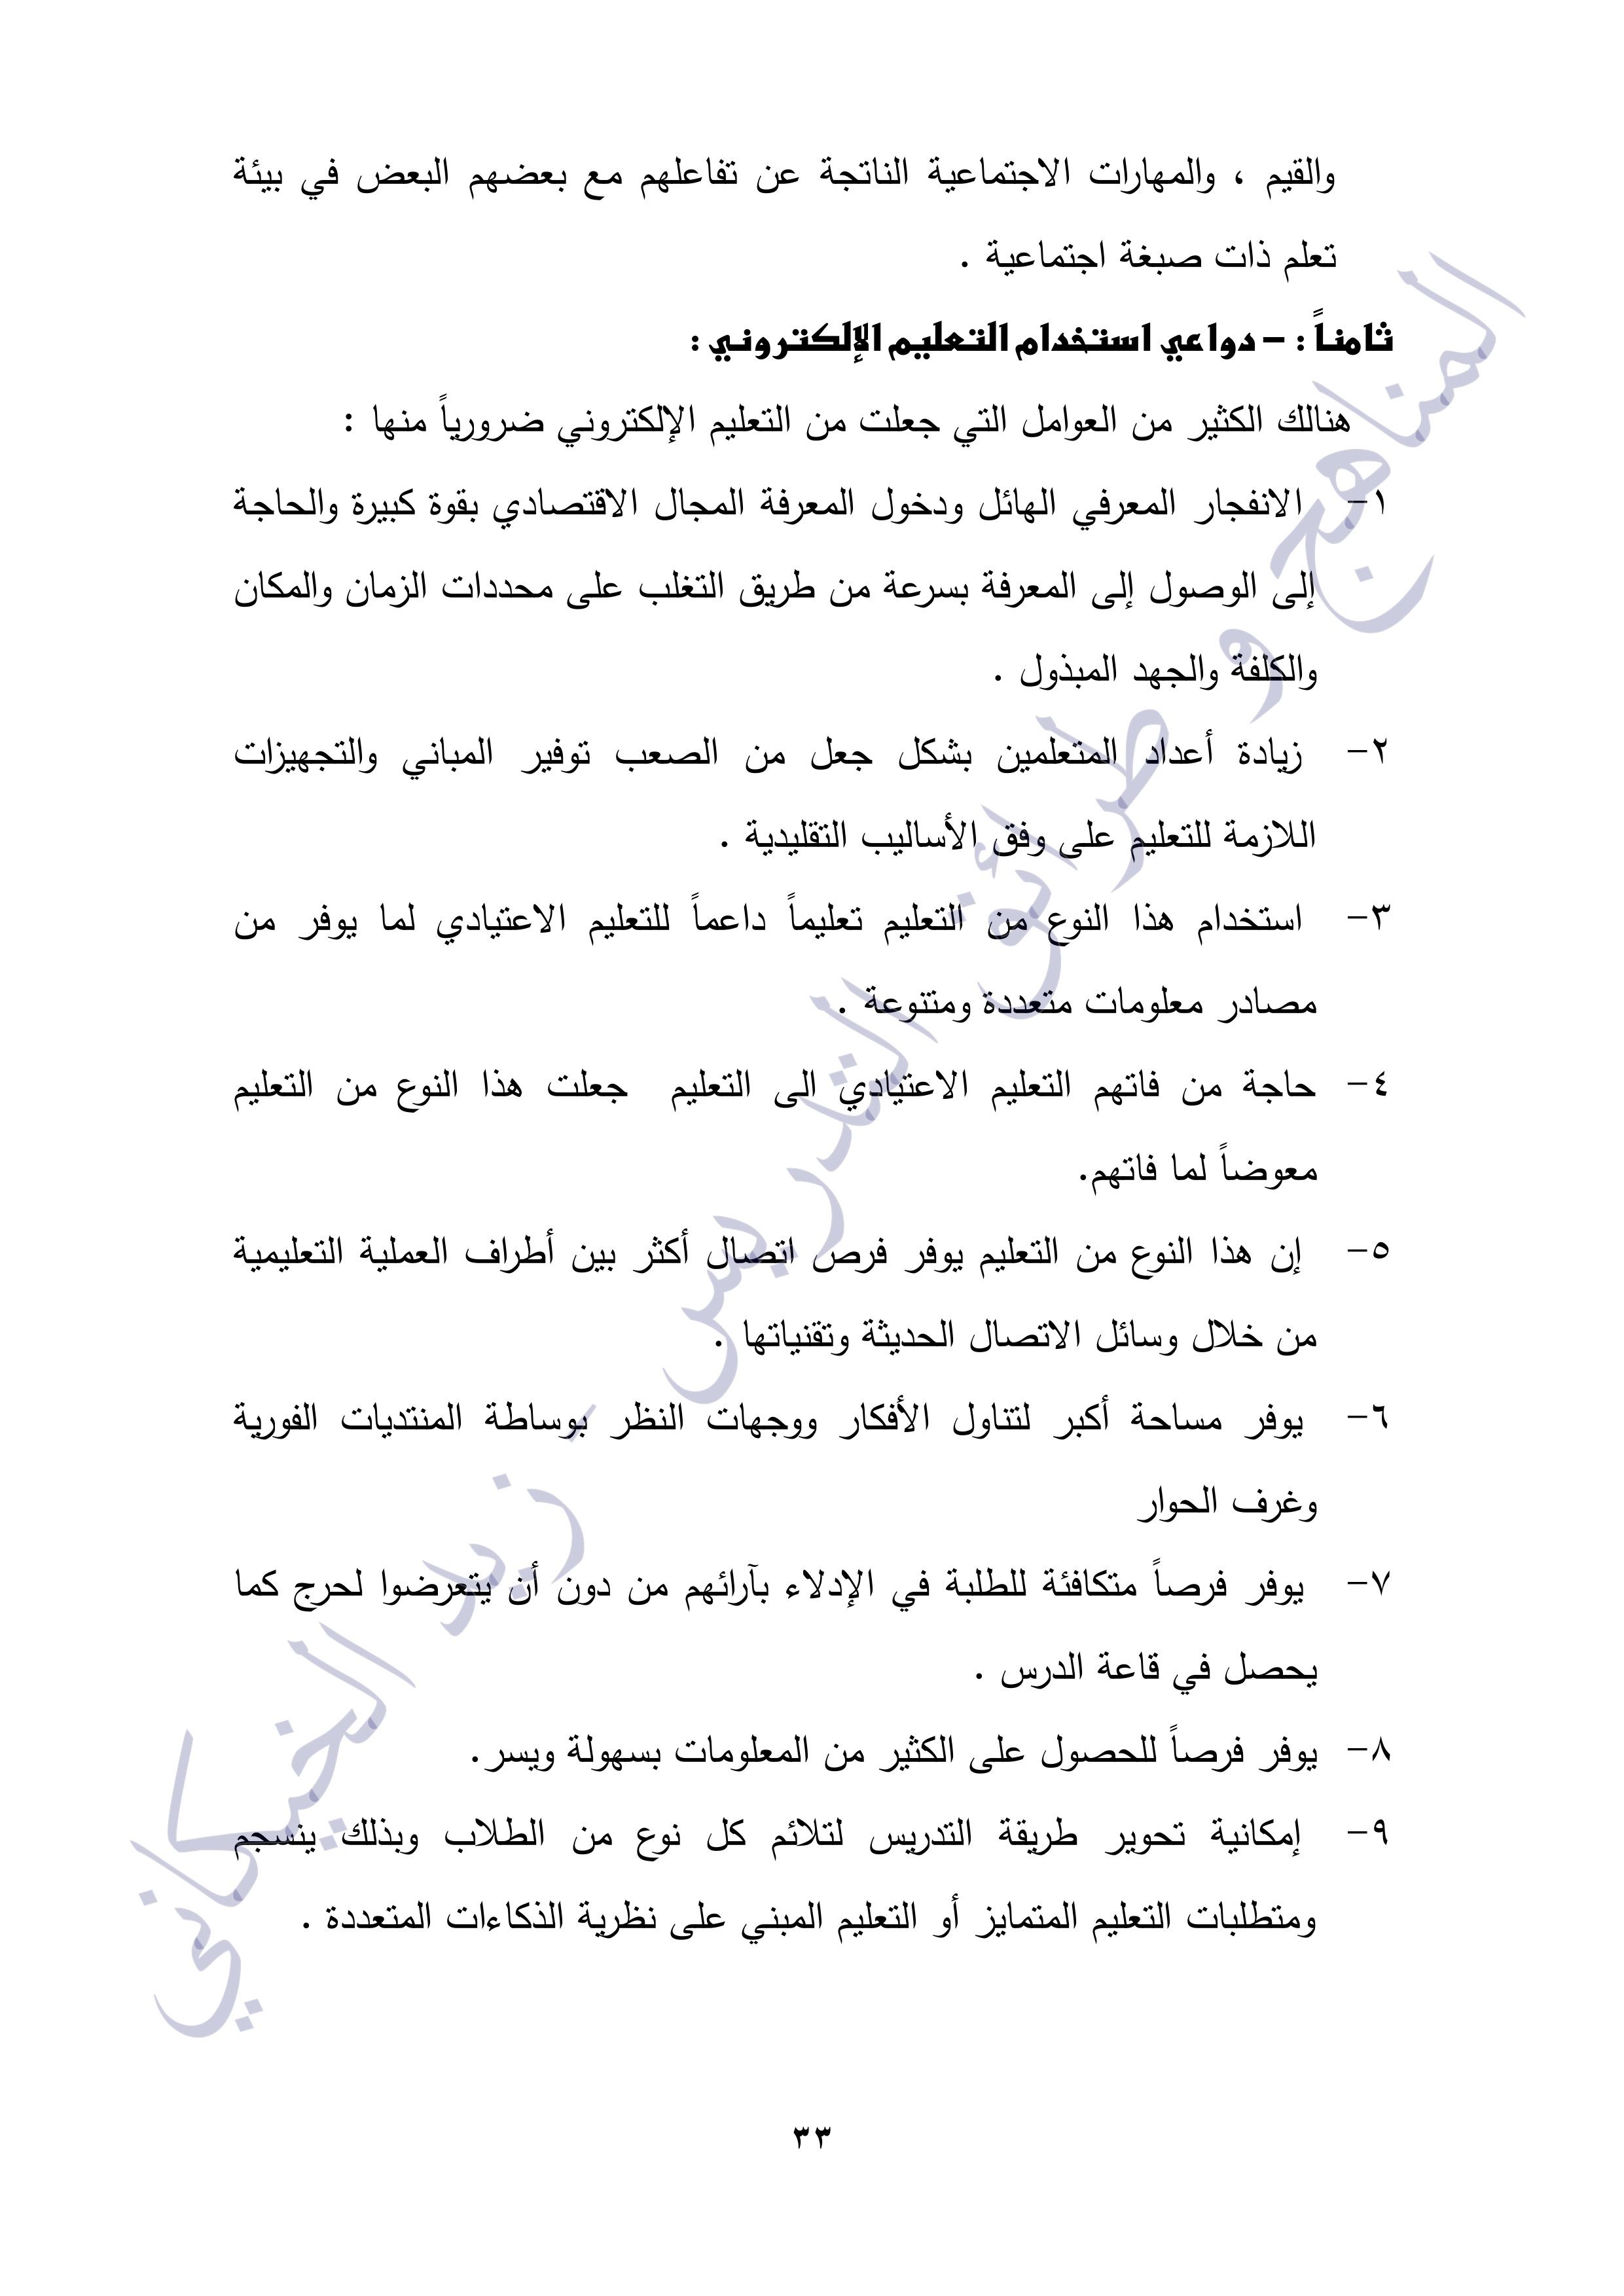 والقيم ، والمهارات الاجتماعية الناتجة عن تفاعلهم مع بعضهم البعض في بيئة
تعلم ذات صبغة اجتماعية .
ثامناً : – دواعي استخدام التعليم الإلكتروني :
هنالك الكثير من العوامل التي جعلت من التعليم الإلكتروني ضرورياً منها :
١- الانفجار المعرفي الهائل ودخول المعرفة المجال الاقتصادي بقوة كبيرة والحاجة
إلى الوصول إلى المعرفة بسرعة من طريق التغلب على محددات الزمان والمكان
والكلفة والجهد المبذول .
٢- زيادة أعداد المتعلمين بشكل جعل من الصعب توفير المباني والتجهيزات
اللازمة للتعليم على وفق الأساليب التقليدية .
٣- استخدام هذا النوع من التعليم تعليماً داعماً للتعليم الاعتيادي لما يوفر من
مصادر معلومات متعددة ومتنوعة .
٤- حاجة من فاتهم التعليم الاعتيادي الى التعليم جعلت هذا النوع من التعليم
معوضاً لما فاتهم.
٥- إن هذا النوع من التعليم يوفر فرص اتصال أكثر بين أطراف العملية التعليمية
من خلال وسائل الاتصال الحديثة وتقنياتها .
٦- يوفر مساحة أكبر لتناول الأفكار ووجهات النظر بوساطة المنتديات الفورية
وغرف الحوار
٧- يوفر فرصاً متكافئة للطلبة في الإدلاء بآرائهم من دون أن يتعرضوا لحرج كما
يحصل في قاعة الدرس .
٨- يوفر فرصاً للحصول على الكثير من المعلومات بسهولة ويسر.
٩- إمكانية تحوير طريقة التدريس لتلائم كل نوع من الطلاب وبذلك ينسجم
ومتطلبات التعليم المتمايز أو التعليم المبني على نظرية الذكاءات المتعددة .
المناهج وطرائق التدريس - زيد الخيكاني
٣٣